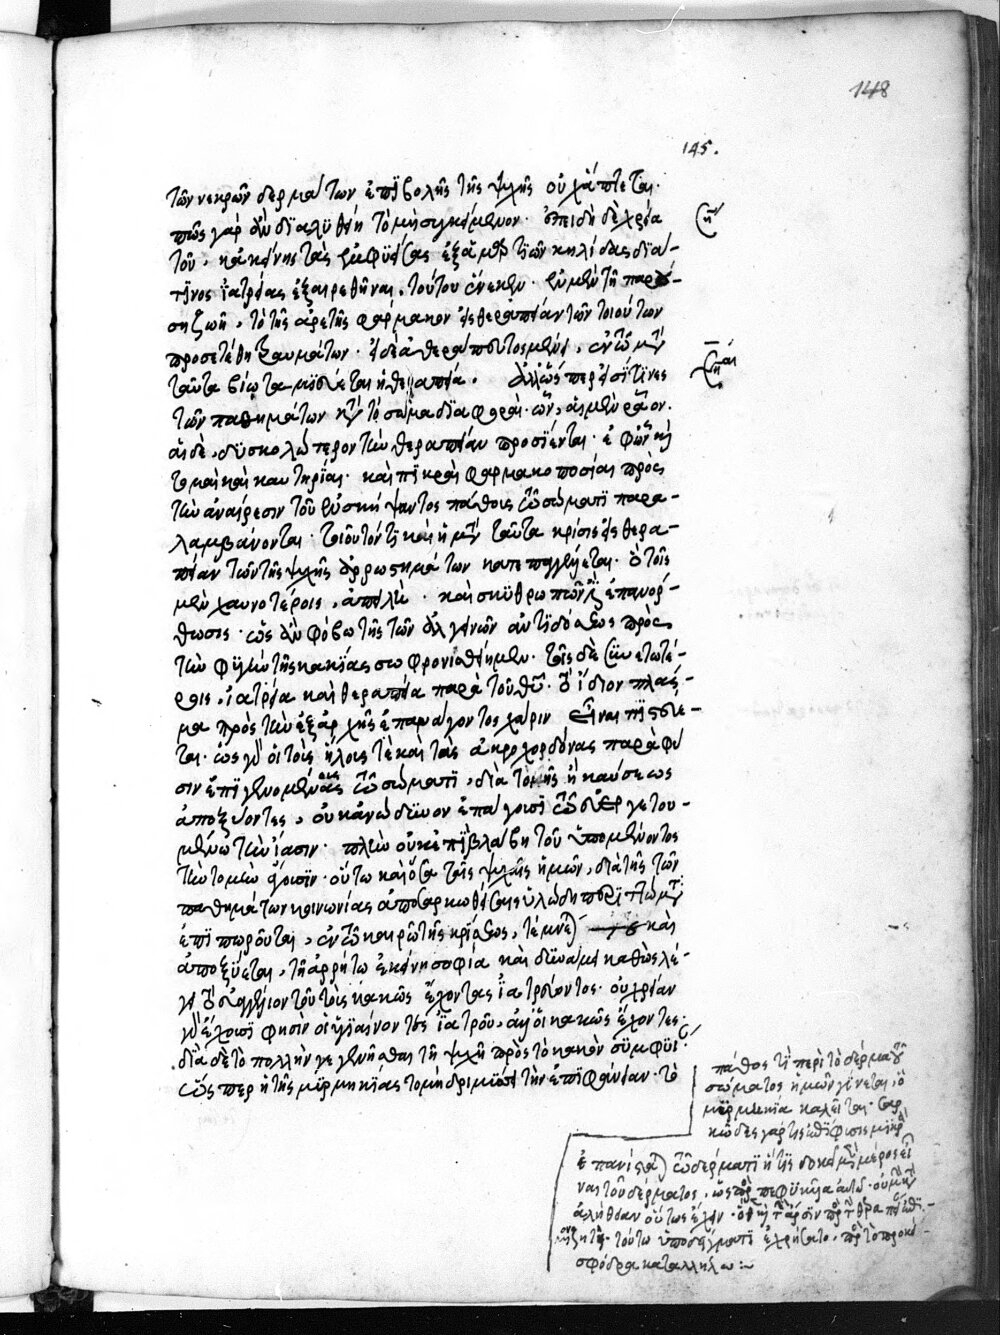 148
145.
τῶν νεκρῶν δερμάτων ἐπϊβολῆς τῆς ψυχῆς οὐχ ἅπτεται.
πῶς γὰρ ἂν διαλυθείη τὸ μὴ συγκείμενον. ἐπειδὴ δὲ χρεία
τοῦ, κἀκείνης τὰς ἐμφυείσας ἐξ ἁμαρτιῶν κηλίδας διά
τινος ἰατρείας ἐξαιρεθῆναι, τούτου ἕνεκεν, ἐν μὲν τῇ παρού-
σῃ ζωῇ, τὸ τῆς ἀρετῆς φάρμακον εἰς θεραπείαν τῶν τοιούτων
προσετέθη τραυμάτων. εἰ δὲ ἀθεράπευτος μένει, ἐν τῷ μετὰ
ταῦτα βίω τεταμίευται ἡ θεραπεία. ἀλλ' ὥσπερ εἰσί τινες
τῶν παθημάτων κατὰ τὸ σῶμα διαφοραὶ, ὧν, αἱ μὲν ῥᾶον.
αἱ δὲ, δυσκολώτερον τὴν θεραπείαν προσίενται. ἐφ' ὧν καὶ
τομαὶ καὶ καυτηρίαι. καὶ πικραὶ φαρμακοποσίαι πρὸς
τὴν ἀναίρεσιν τοῦ ἐνσκήψαντος πάθους τῷ σώματι παρα-
λαμβάνονται. τοιοῦτόν τι καὶ ἡ μετὰ ταῦτα κρίσις εἰς θερα-
πείαν τῶν τῆς ψυχῆς ἀρρωστημάτων κατεπαγγέλεται. ὃ τοῖς
μὲν χαυνοτέροις, ἀπειλὴ. καὶ σκυθρωπῶν ἐπανόρ-
θωσις. ὡς ἂν φόβω τῆς τῶν ἀλγεινῶν ἀντιδόσεως πρὸς
τὴν φυγὴν τῆς κακίας σωφρονισθείημεν. τοῖς δὲ συνετωτέ-
ροις, ἰατρεία καὶ θεραπεία παρὰ τοῦ θεοῦ. τὸ ἴδιον πλάσ-
μα πρὸς τὴν ἐξ ἀρχῆς ἐπανάγοντος χάριν εἶναι πιστεύε-
ται. ὡς γὰρ οἱ τοὺς ἥλους τὲ καὶ τὰς ἀκροχορδόνας παρὰ φύ
σιν ἐπιγενομένας τῷ σώματι, διὰ τομῆς ἢ καύσεως
ἀποξύοντες, οὐκ ἀνώδυνον ἐπάγουσι τῷ εὐεργετου-
μένω τὴν ἴασιν. πλὴν οὐκ ἐπὶ βλάβῃ τοῦ ὑπομένοντος
τὴν τομὴν ἄγουσιν. οὕτω καὶ ὅσα ταῖς ψυχαῖς ἡμῶν, διὰ τῆς τῶν
παθημάτων κοινωνίας ἀποσαρκωθείσαις ὑλώδη περιττώματα
ἐπιπωροῦται, ἐν τῷ καιρῷ τῆς κρίσεως, τέμνεται καὶ
ἀποξύεται, τῇ ἀρρήτω ἐκείνῃ σοφία καὶ δυνάμει καθὼς λέ-
γει τὸ εὐαγγέλιον τοῦ τοὺς κακῶς ἔχοντας ἰατρεύοντος. οὐ χρείαν
γὰρ ἔχουσι φησὶν οἱ ὑγιαίνοντες ἰατροῦ, ἀλλ' οἱ κακῶς ἔχοντες.
διὰ δὲ τὸ πολλὴν γεγενῆσθαι τῇ ψυχῇ πρὸς τὸ κακὸν συμφυΐαν
ὥσπερ ἡ τῆς μυρμηκίας τομὴ δριμύσσει τὴν ἐπιφάνειαν. τὸ
πάθος τι περὶ τὸ δέρμα τοῦ
σώματος ἡμῶν γίνεται, ὃ
μυρμηκία καλεῖται. σαρ
κῶδες γὰρ
σφόδρα καταλλήλω:~